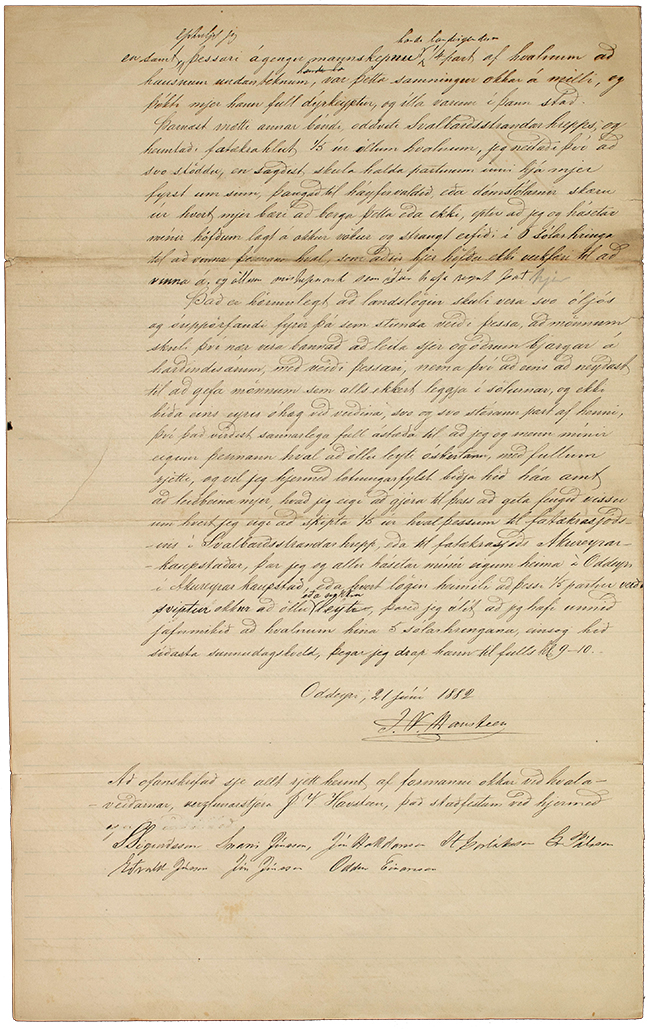 eptirljet jeg bónda landeiganda
en samt, þessari ágengu mannskepnu ¼ part af hvalnum að
hausnum undanteknum, var þetta samningur okkar á milli, og
þótti mjer hann full dýrkeyptur, og illa varinn í þann stað.
Þarnæst mætti annar bóndi, oddviti Svalbarðsstrandarhrepps, og
heimtaði fátækrahlut 1/5 úr öllum hvalnum, jeg neitaði því að
svo stöddu, en sagðist skula halda partinum inni hjá mjer
fyrst um sinn, þangað til háyfirvaldið eða dómstólarnir skæru
úr hvert mjer bæri að borga þetta eða ekki, eptir að jeg og hásetar
mínir höfðum lagt á okkur vökur og strangt erfiði í 6 sólarhringa
til að vinna þennan hval, sem aðrir hjer höfðu ekki verkfæri til að
vinna á, og öllum mishepnast sem áður hafa reynt það hjer
Það er hörmulegt að landslögin skuli vera svo óljós
og óuppörfandi fyrir þá sem stunda veiði þessa, að mönnum
skuli því nær vera bannað að leita sjer og öðrum bjargar á
harðindisárum, með veiði þessari, nema því að eins að neyðast
til að gefa mönnum sem alls ekkert leggja í sölurnar, og ekki
bíða eins eyris óhag við veiðina, svo og svo stórann part af henni,
því það virðist sannarlega full ástæða til að jeg og menn mínir
eigum þennann hval að öllu leyti óskertann, með fullum
rjetti, og vil jeg hjermeð lotningarfyllst biðja hið háa amt
að leiðbeina mjer hvað jeg eigi að gjöra til þess að geta fengið vissu
um hvert jeg eigi að skipta 1/5 úr hval þessum til fátækrasjóðs-
-ins í Svalbarðsstrandarhrepp, eða til fátækrasjóðs Akureyrar-
-kaupstaðar, þar jeg og allir hásetar mínir eigum heima á Oddeyri
í Akureyrar kaupstað, eða hvert lögin heimili að þessi 1/5 partur verði
eða nokkru
sviptur okkur að öllu leyti, þareð jeg álít að jeg hafi unnið
jafnmikið að hvalnum hina 5 sólarhringana, einsog hið
síðasta sunnudagskvöld, þegar jeg drap hann til fulls Kl 9-10.
Oddeyri, 21 júní 1882
J. V. Havsteen
Að ofanskrifað sje allt rjett hermt, af formanni okkar við hvala-
-veiðarnar, verzlunarstjóra J V Havsteen, það staðfestum við hjermeð
S Sigurðsson Jón Halldórsson
Jón Jónsson Oddur Einarsson